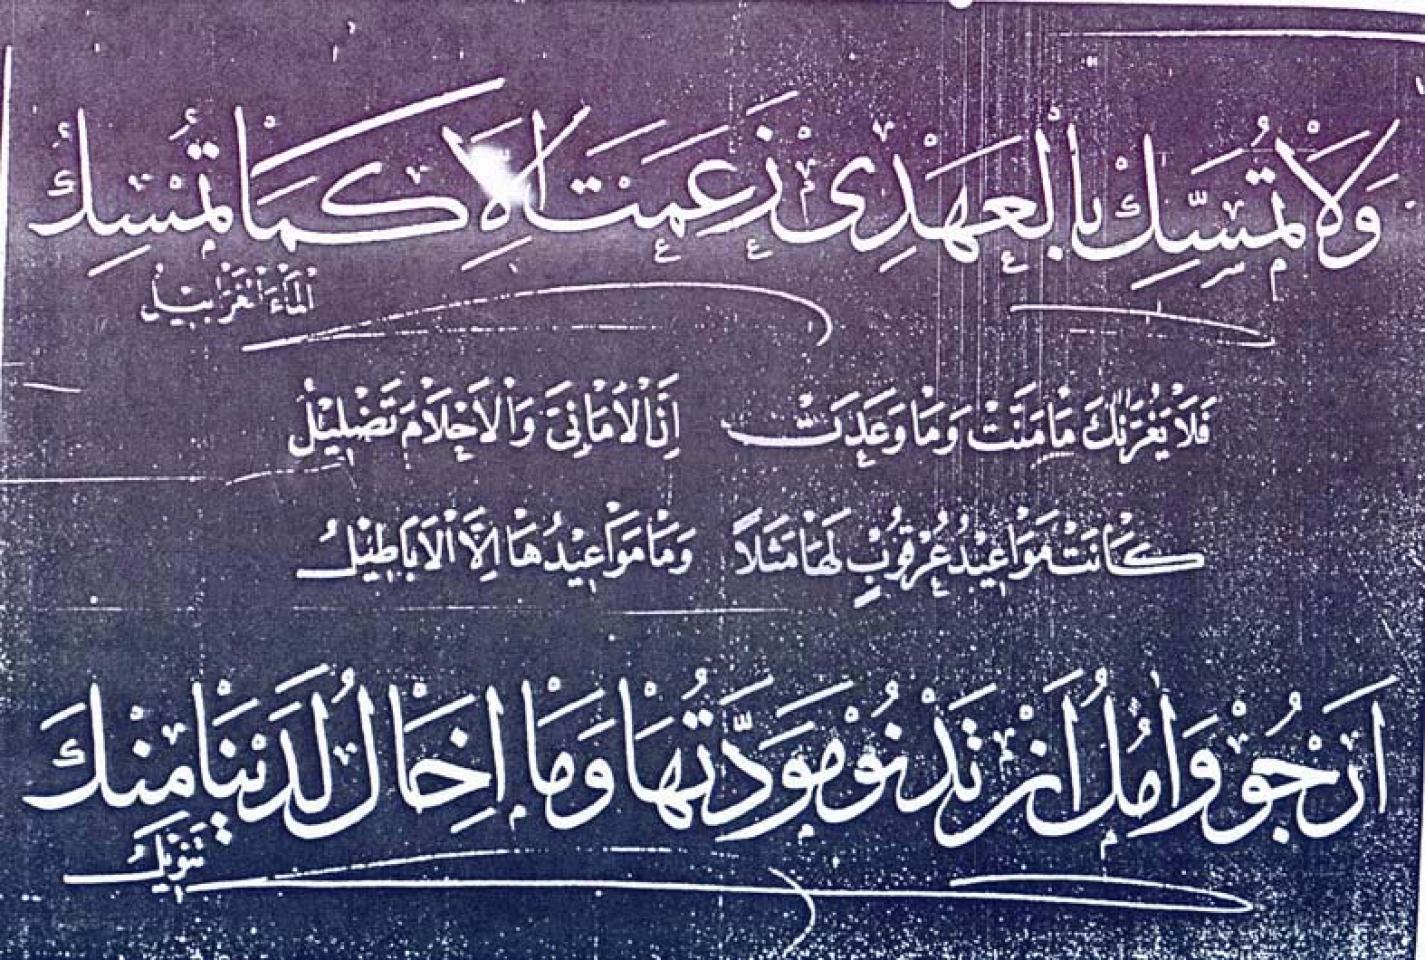 وَلَا تُمَسِّكُ بِالْعَهْدِ الَّذِى زَعَمَتْ اِلَّا كَمَا تُمْسِكُ
الْمَاءَ الْغَرَابِيلُ
فَلَا يَغُرَّنْكَ مَا مَنَّتْ وَمَا وَعَدَتْ اِنَّ الْاَمَانِىَّ وَالْاَحْلَامَ تَضْلِيلُ
كَانَتْ مَوَاعِيدُ عُرْقُوبٍ لَهَا مَثَلاً وَمَا مَوَاعِيْدُهَا اِلَّا الْاَبَاطِيْلُ
اَرْجُوْ وَاٰمُلُ اَنْ تَدْنُوْ مَوَدَّتُهَا وَمَا اِخَالُ لَدَيْنَا مِنْكَ
تَنْوِيلُ